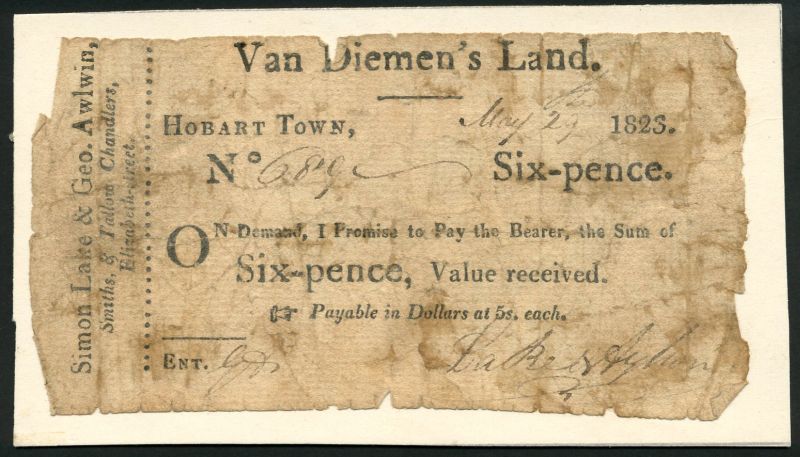 Simon Lake & Geo. Awlwin,
Smiths, & Tallow Chandlers,
Elizabeth-street.
Van Diemen's Land.
Hobart Town, May 29 1823.
No 689 Six-pence.
On Demand, I Promise to Pay the Bearer, the Sum of
Six-pence, Value received.
☞ Payable in Dollars at 5s. each.
Ent.
Lake &